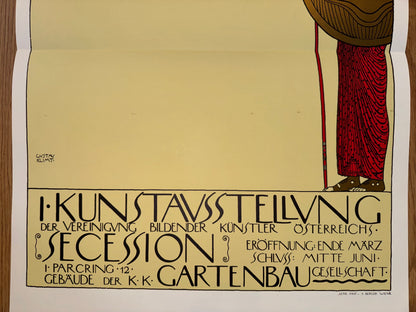 GUSTAV
KLIMT
I·KUNSTAVSSTELLVNG
DER VEREINIGVNG BILDENDER KÜNSTLER ÖSTERREICHS·
SECESSION
ERÖFFNUNG: ENDE MÄRZ
SCHLVSS: MITTE JUNI·
I·PARCRING·12·
GEBÄUDE DER K.K. GARTENBAU GESELLSCHAFT·